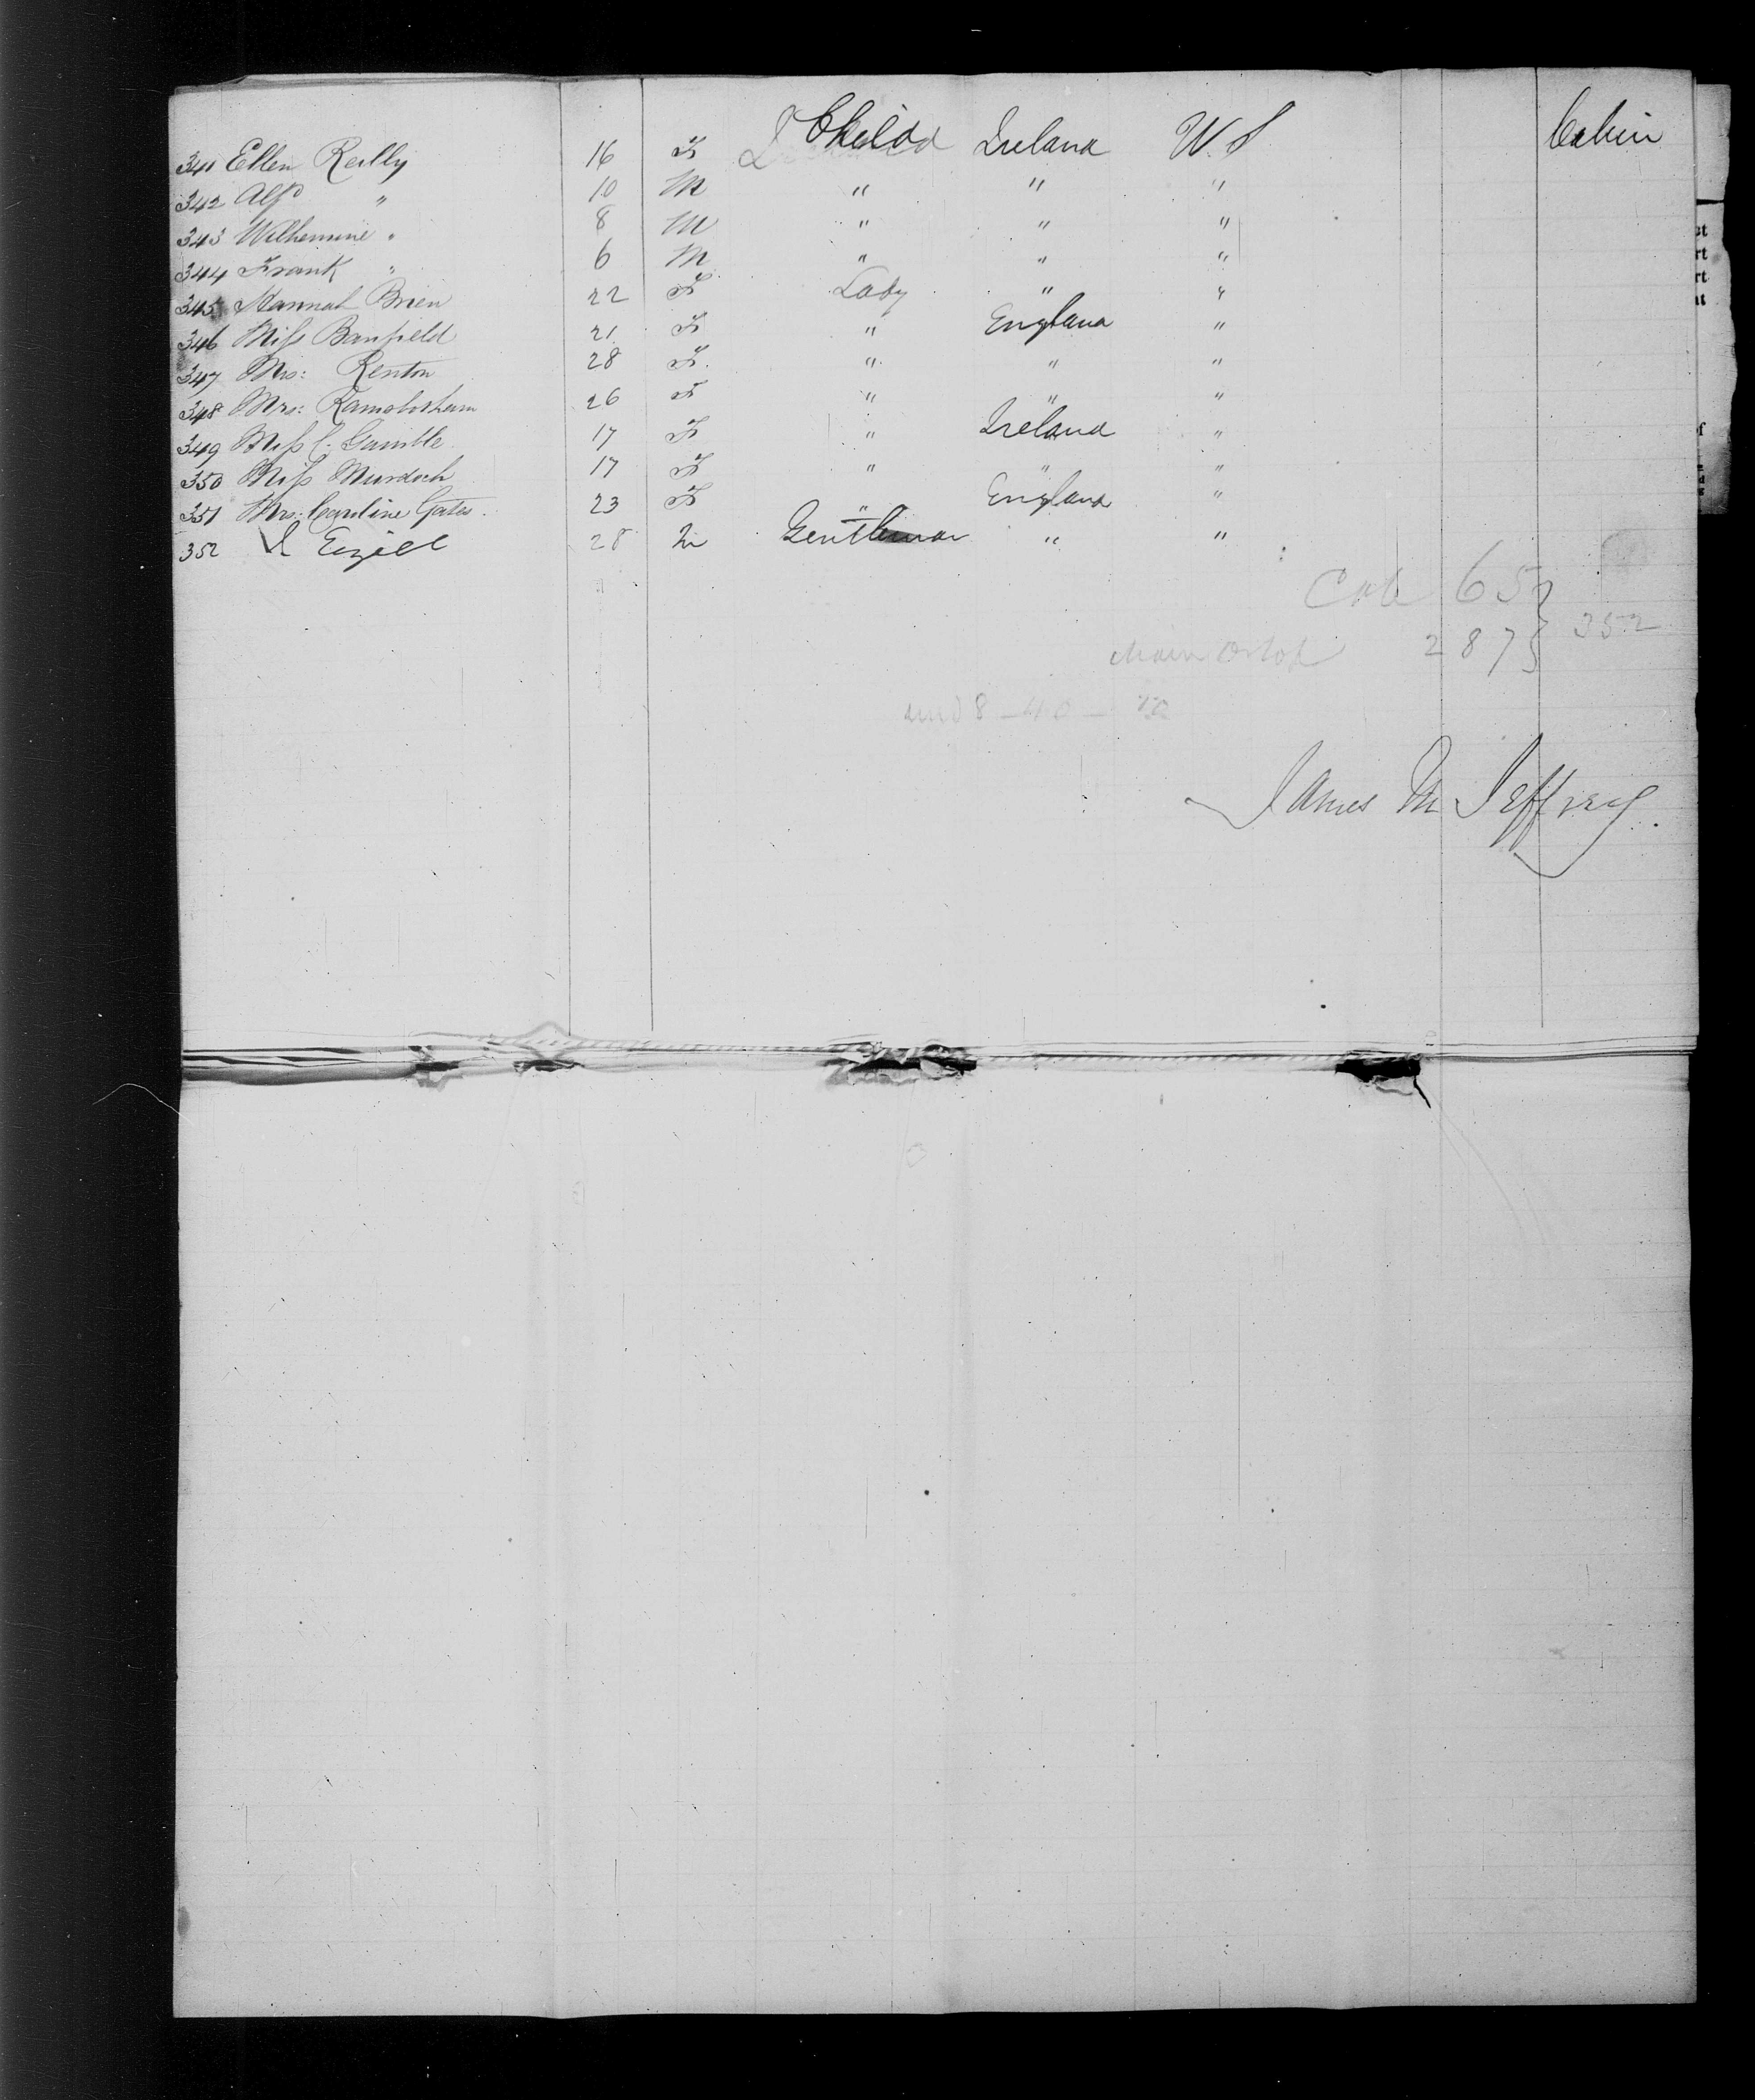 341 Ellen Reilly 16 F Child Ireland W. S Cabin
342 Alfd " 10 M " " "
343 Wilhemine " 8 M " " "
344 Frank " 6 M " " "
345 Hannah Brien 22 F Lady " "
346 Miss Banfield 21 F " England "
347 Mrs: Renton 28 F. " " "
348 Mrs: 26 F " " "
349 Miss C. Gamble 17 F " Ireland "
350 Miss Murdoch 17 F " " "
351 Mrs. Caroline Gates. 23 F " England "
352 28 M Gentleman " "
Cab 65 } 352
Main Orlop 287
James M Jeffrey.